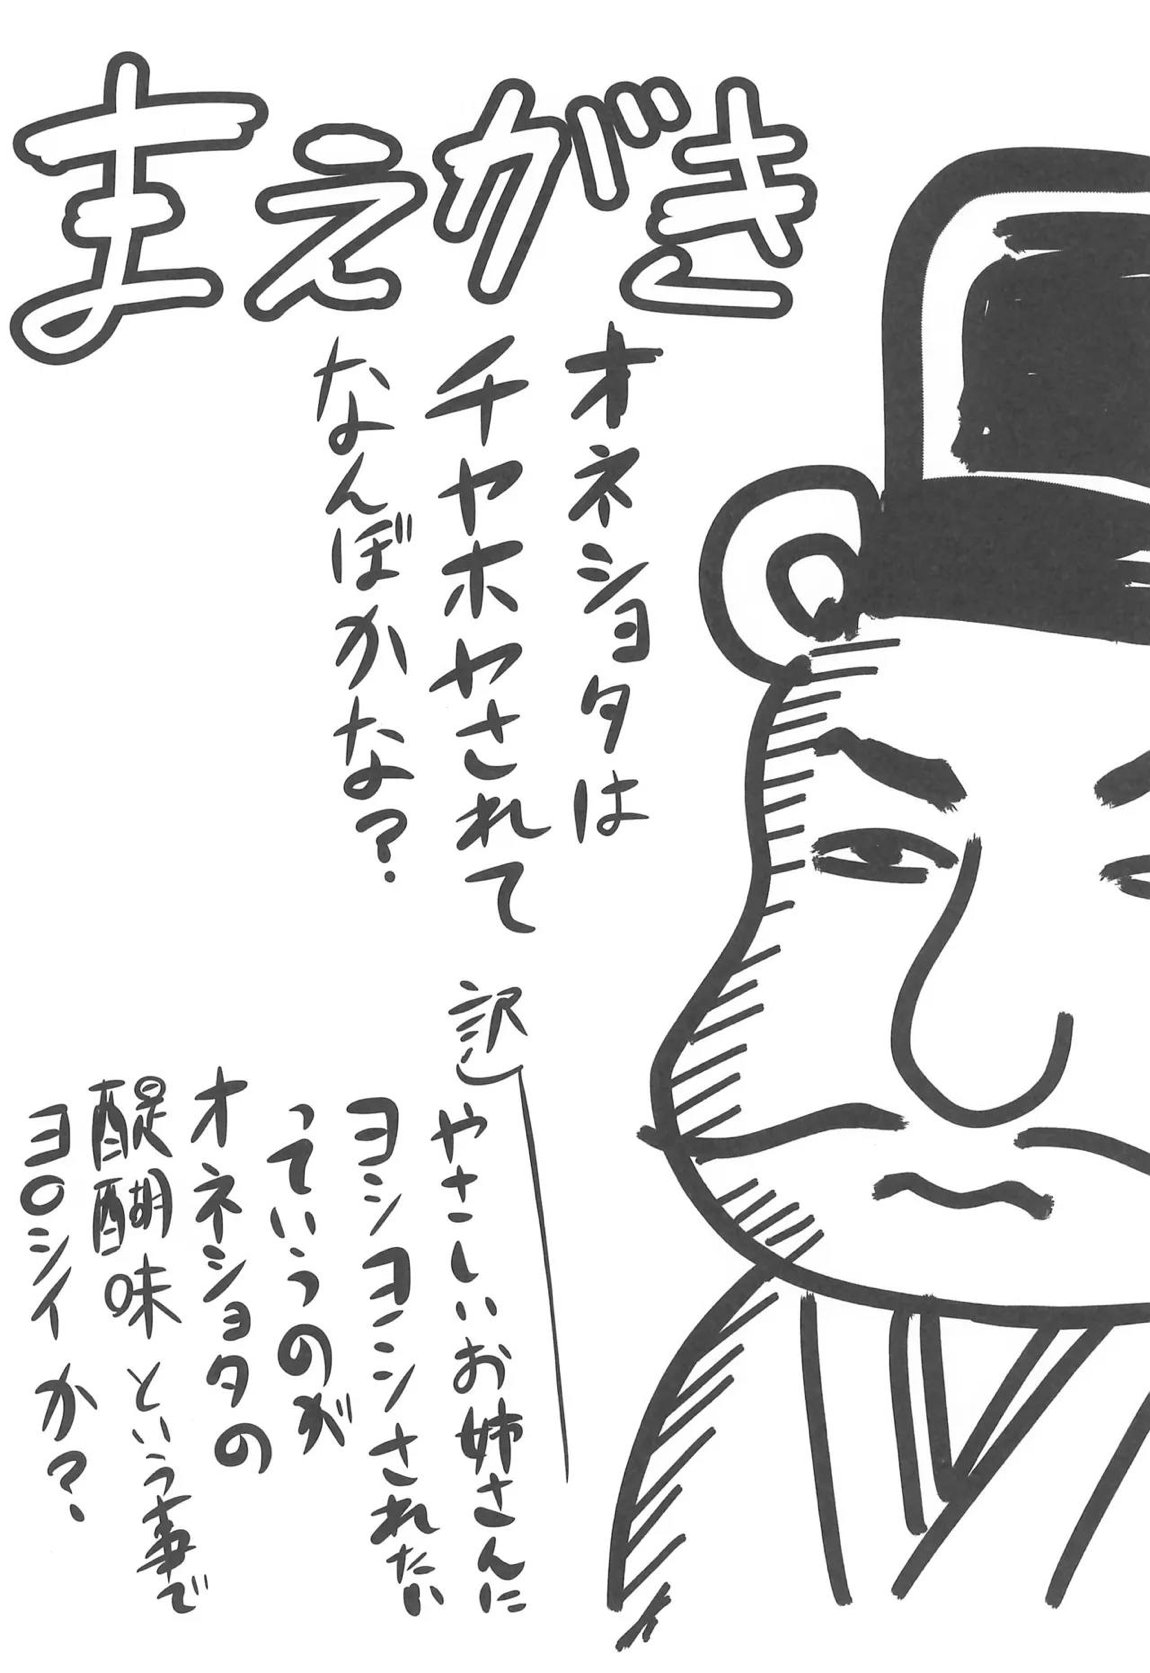 まえがき
オネショタは
チヤホヤされて
なんぼかな？
訳
やさしいお姉さんに
ヨシヨシされたい
っていうのが
オネショタの
醍醐味という事で
ヨロシイか？